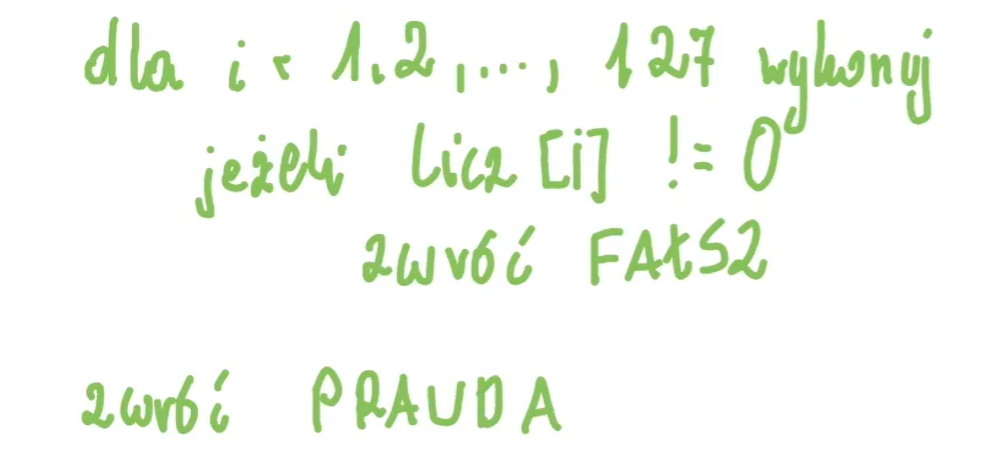 dla i < 1.2,..., 127 wykonuj
jeżeli Licz [i] != 0
zwróć FAŁSZ
zwróć PRAWDA